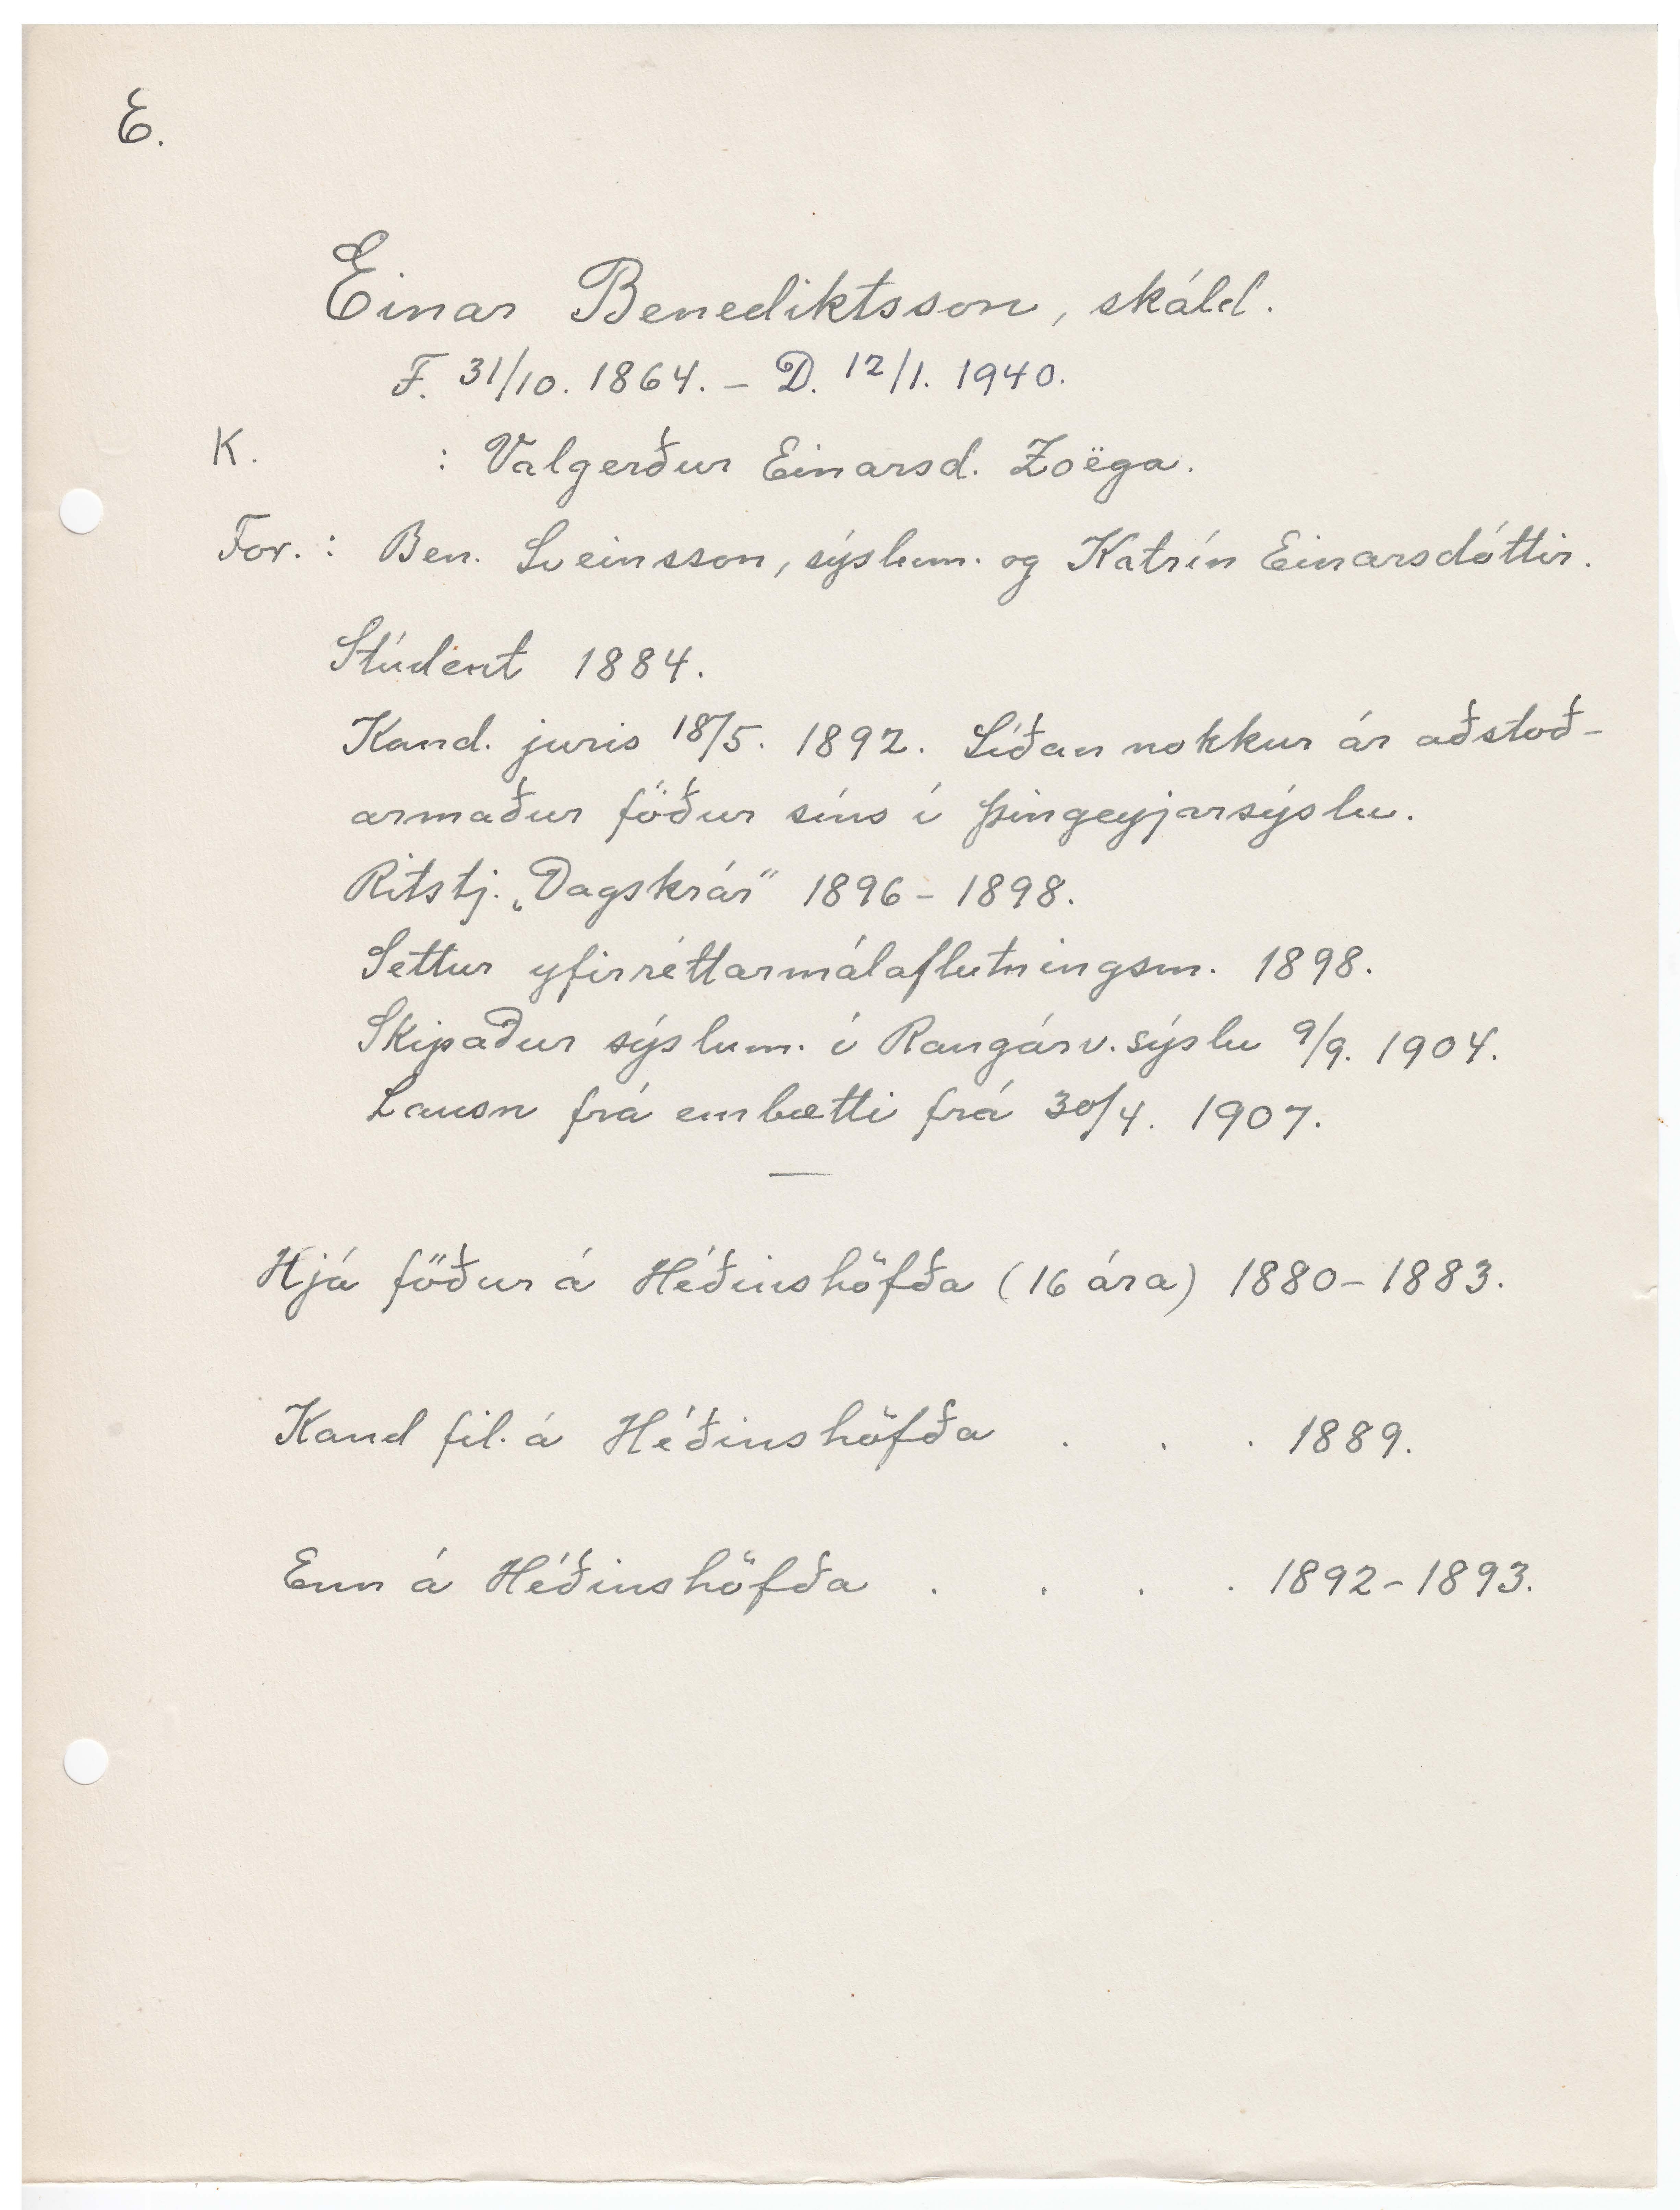 E.
Einar Benediktsson, skáld.
F. 31/10. 1864. – D. 12/1. 1940.
K. : Valgerður Einarsd. Zoëga.
For. : Ben. Sveinsson, sýslum. og Katrín Einarsdóttir.
Stúdent 1884.
Kand. juris 18/5. 1892. Síðan nokkur ár aðstoð-
armaður föður síns í Þingeyjarsýslu.
Ritstj. „Dagskrár" 1896 – 1898.
Settur yfirréttarmálaflutningsm. 1898.
Skipaður sýslum. í Rangárv.sýslu 9/9. 1904.
Lausn frá embætti frá 30/4. 1907.
Hjá föður á Héðinshöfða (16 ára) 1880 – 1883.
Kand fil. á Héðinshöfða . . . 1889.
Enn á Héðinshöfða . . . . 1892 – 1893.